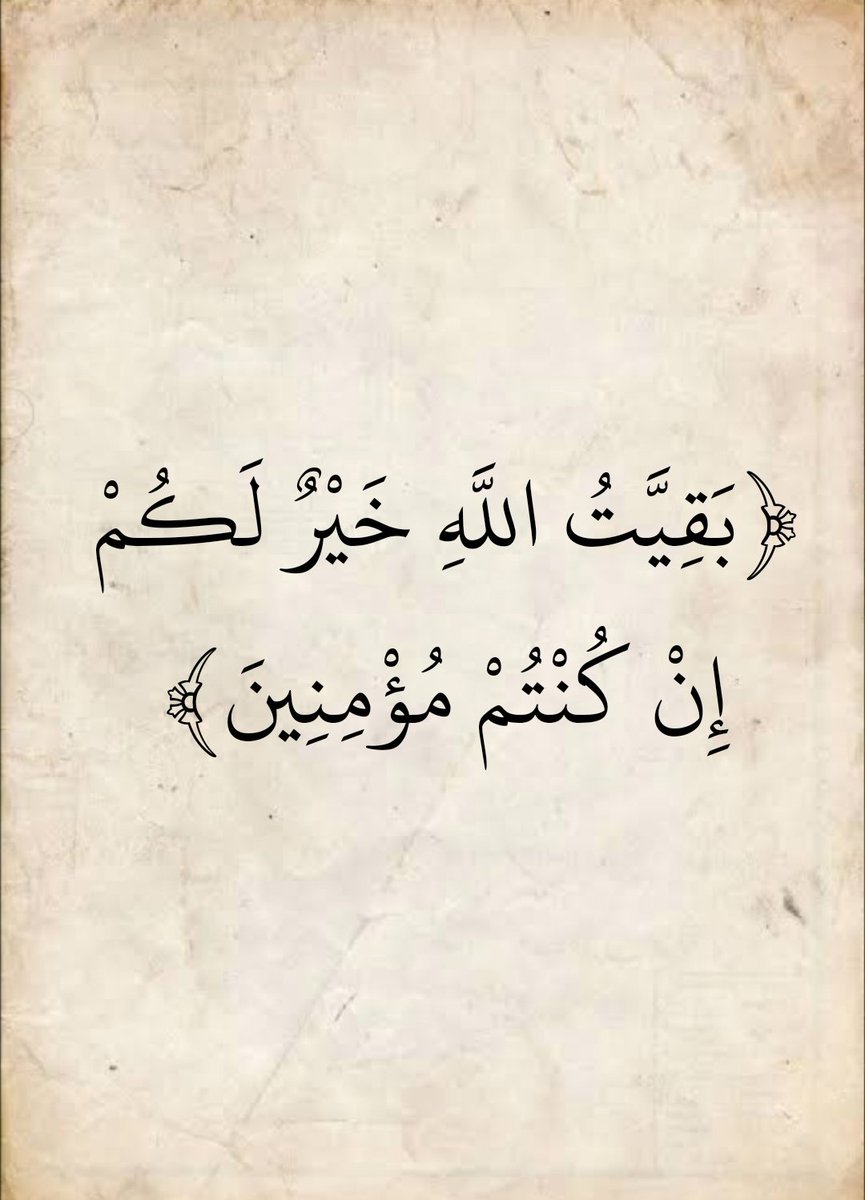 ﴿بَقِيَّتُ اللَّهِ خَيْرٌ لَكُمْ
إِنْ كُنْتُمْ مُؤْمِنِينَ﴾